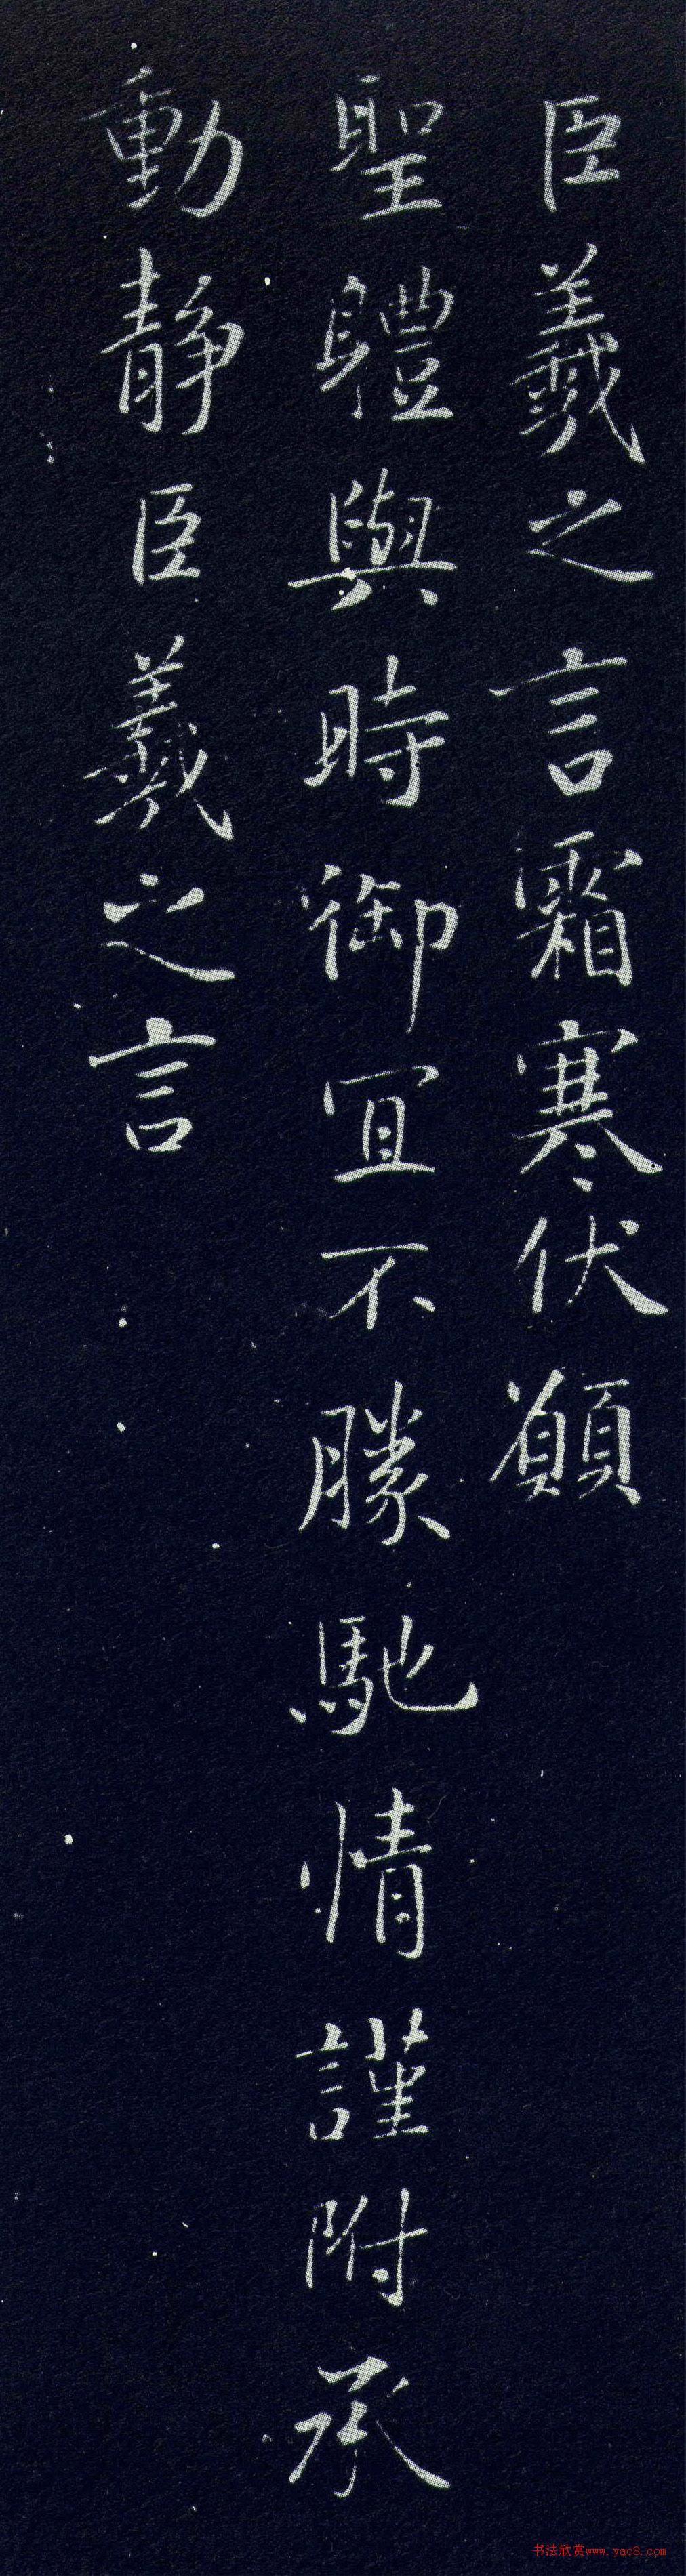 臣羲之言霜寒伏願
聖軆與時御宜不勝馳情謹附承
動静臣羲之言
书法欣赏www.yac8.com